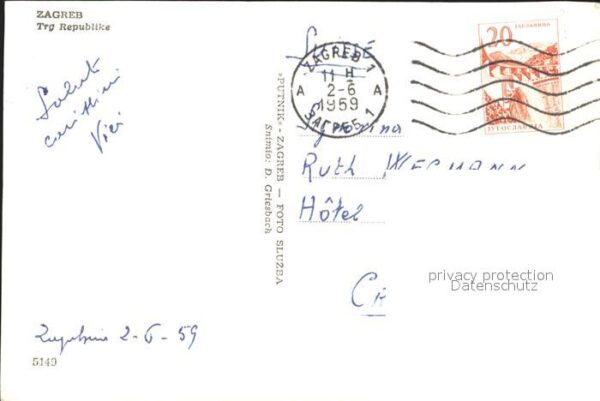 ZAGREB
Trg Republike
Saluti
Vici
2-6-59
5149
»PUTNIK« - ZAGREB — FOTO SLUŽBA
Snimio: D. Griesbach
ZAGREB 1
11 H
A A
2-6
1959
ЗАГРЕБ 1
ЈУГОСЛАВИЈА
20
JUGOSLAVIJA
Signorina
Ruth
Hôtel
privacy protection
Datenschutz